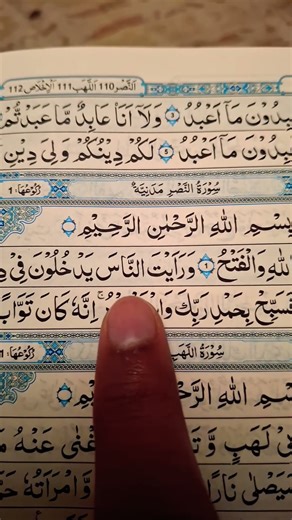 النَّصْر 110 اللَّهَب 111 الْاِخْلَاص 112
مَآ اَعْبُدُ ۝۳ وَلَآ اَنَا عَابِدٌ مَّا عَبَدْتُّمْ
مَآ اَعْبُدُ ۝۵ لَكُمْ دِيْنُكُمْ وَلِيَ دِيْنِ
سُوْرَةُ النَّصْرِ مَدَنِيَّةٌ
رُكُوْعُهَا: 1
بِسْمِ اللهِ الرَّحْمٰنِ الرَّحِيْمِ
اللهِ وَالْفَتْحُ ۝۱ وَرَاَيْتَ النَّاسَ يَدْخُلُوْنَ فِيْ
فَسَبِّحْ بِحَمْدِ رَبِّكَ اِنَّهٗ كَانَ تَوَّابًا
سُوْرَةُ اللَّهَبِ
اللهِ
لَهَبٍ وَّ عَنْهُ
سَيَصْلٰى نَارًا وَّ امْرَاَتُهٗ